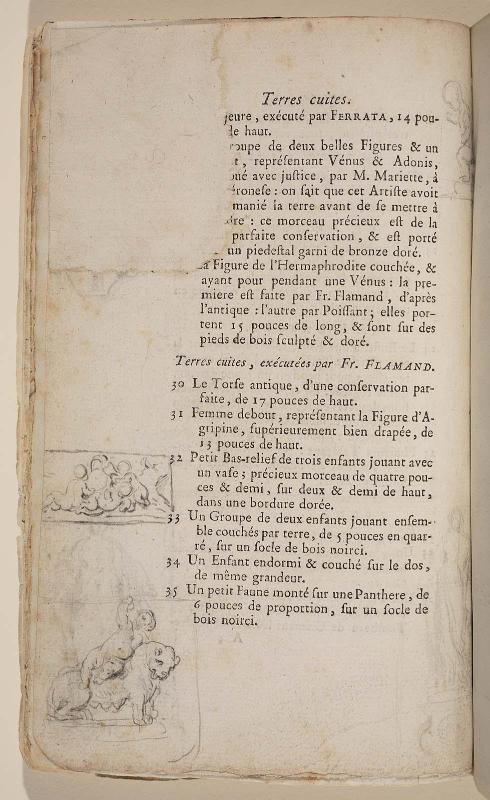 Terres cuites.
jeure, exécuté par FERRATA, 14 pou-
de haut.
roupe de deux belles Figures & un
t, repréſentant Vénus & Adonis,
oué avec juſtice, par M. Mariette, à
éroneſe : on ſait que cet Artiſte avoit
manié ſa terre avant de ſe mettre à
dre : ce morceau précieux eſt de la
parfaite conſervation, & eſt porté
un piedeſtal garni de bronze doré.
La Figure de l'Hermaphrodite couchée, &
ayant pour pendant une Vénus : la pre-
miere eſt faite par Fr. Flamand, d'après
l'antique : l'autre par Poiſſant; elles por-
tent 15 pouces de long, & ſont ſur des
pieds de bois ſculpté & doré.
Terres cuites, exécutées par Fr. FLAMAND.
30 Le Torſe antique, d'une conſervation par-
faite, de 17 pouces de haut.
31 Femme debout, repréſentant la Figure d'A-
gripine, ſupérieurement bien drapée, de
13 pouces de haut.
32 Petit Bas-relief de trois enfants jouant avec
un vaſe; précieux morceau de quatre pou-
ces & demi, ſur deux & demi de haut,
dans une bordure dorée.
33 Un Groupe de deux enfants jouant enſem-
ble couchés par terre, de 5 pouces en quar-
ré, ſur un ſocle de bois noirci.
34 Un Enfant endormi & couché ſur le dos,
de même grandeur.
35 Un petit Faune monté ſur une Panthere, de
6 pouces de proportion, ſur un ſocle de
bois noirci.